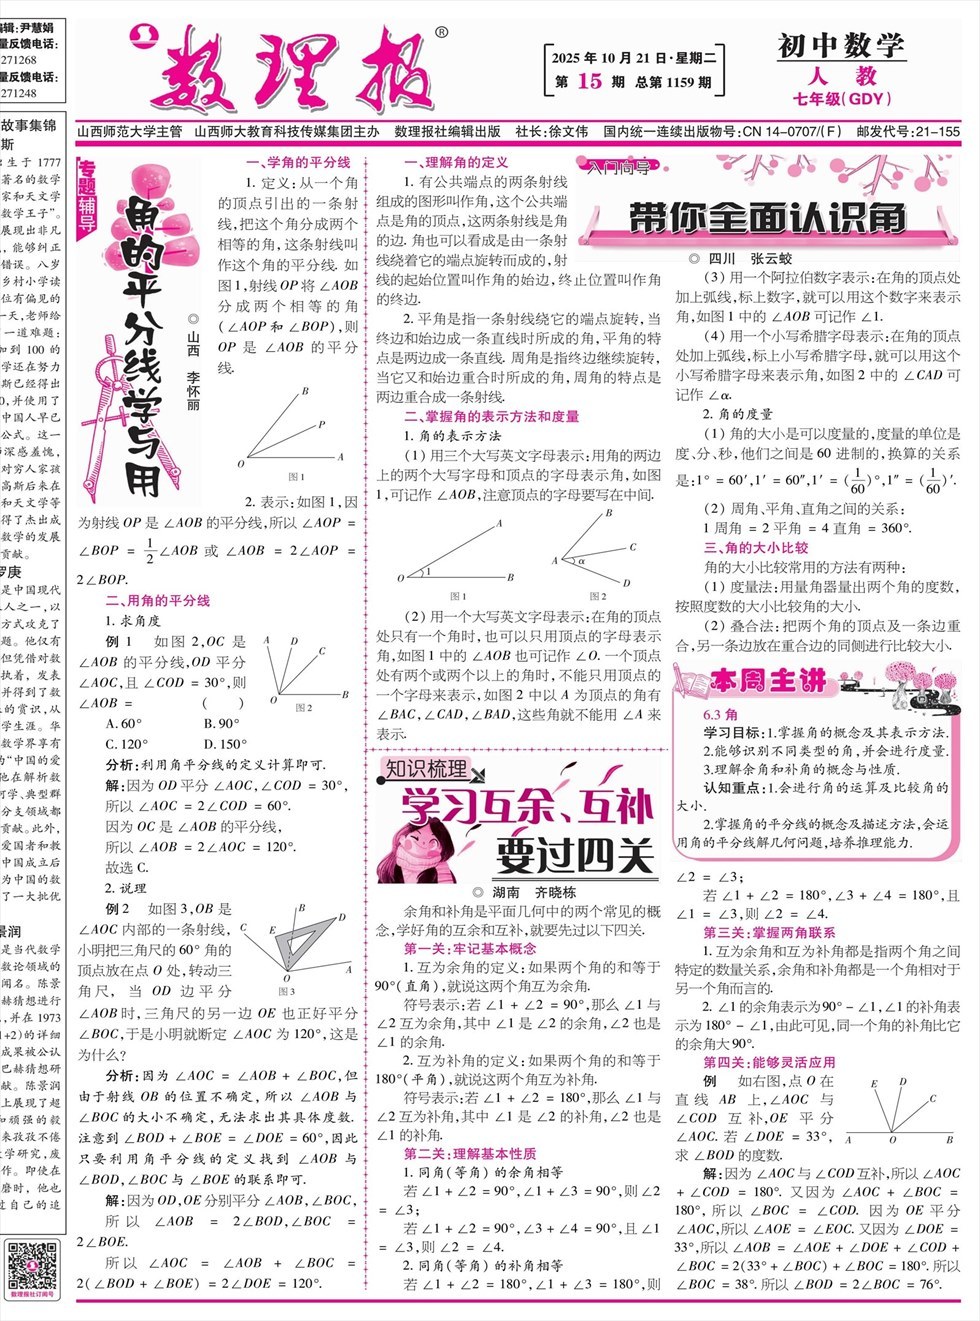 编辑:尹慧娟
量反馈电话:
271268
量反馈电话:
271248
数理报®
2025年10月21日·星期二
第 15 期 总第1159期
初中数学
人 教
七年级(GDY)
山西师范大学主管 山西师大教育科技传媒集团主办 数理报社编辑出版 社长:徐文伟 国内统一连续出版物号:CN 14-0707/(F) 邮发代号:21-155
故事集锦
斯
生于 1777
著名的数学
家和天文学
数学王子”。
展现出非凡
,能够纠正
错误。八岁
乡村小学读
位有偏见的
一天,老师给
一道难题:
加到 100 的
学还在努力
斯已经得出
0,并使用了
中国人早已
公式。这一
深感羞愧,
对穷人家孩
高斯后来在
和天文学等
得了杰出成
数学的发展
贡献。
罗庚
是中国现代
人之一,以
方式攻克了
题。他仅有
但凭借对数
执着,发表
并得到了数
的赏识,从
学生涯。华
数学界享有
为“中国的爱
他在解析数
何学、典型群
分支领域都
贡献。此外,
爱国者和教
中国成立后
为中国的数
了一大批优
景润
是当代数学
数论领域的
闻名。陈景
赫猜想进行
,并在 1973
1+2)的详细
成果被公认
巴赫猜想研
献。陈景润
上展现了超
和顽强的毅
来孜孜不倦
学研究,废
作。即使在
磨时,他也
过自己的追
数理报社订阅号
专题辅导
角的平分线学与用
◎ 山西 李怀丽
一、学角的平分线
1. 定义:从一个角
的顶点引出的一条射
线,把这个角分成两个
相等的角,这条射线叫
作这个角的平分线. 如
图1,射线OP将∠AOB
分成两个相等的角
(∠AOP和∠BOP),则
OP 是 ∠AOB 的平分
线.
B
P
O
A
图1
2. 表示:如图1,因
为射线OP是∠AOB的平分线,所以∠AOP =
∠BOP = 1/2∠AOB 或 ∠AOB = 2∠AOP =
2∠BOP.
二、用角的平分线
1. 求角度
例1 如图2,OC 是
∠AOB 的平分线,OD 平分
∠AOC,且∠COD = 30°,则
∠AOB = ( )
A. 60° B. 90°
C. 120° D. 150°
A D
C
O B
图2
分析:利用角平分线的定义计算即可.
解:因为OD平分∠AOC,∠COD = 30°,
所以 ∠AOC = 2∠COD = 60°.
因为OC是∠AOB的平分线,
所以 ∠AOB = 2∠AOC = 120°.
故选C.
2. 说理
例2 如图3,OB 是
∠AOC 内部的一条射线,
小明把三角尺的60°角的
顶点放在点O处,转动三
角尺, 当 OD 边平分
∠AOB时,三角尺的另一边OE也正好平分
∠BOC,于是小明就断定∠AOC为120°,这是
为什么?
B
C E D
A
O
图3
分析:因为 ∠AOC = ∠AOB + ∠BOC,但
由于射线OB的位置不确定,所以∠AOB与
∠BOC的大小不确定,无法求出其具体度数.
注意到∠BOD + ∠BOE = ∠DOE = 60°,因此
只要利用角平分线的定义找到 ∠AOB 与
∠BOD,∠BOC与∠BOE的联系即可.
解:因为OD,OE分别平分∠AOB,∠BOC,
所以 ∠AOB = 2∠BOD,∠BOC =
2∠BOE.
所以 ∠AOC = ∠AOB + ∠BOC =
2(∠BOD + ∠BOE) = 2∠DOE = 120°.
入门向导
带你全面认识角
◎ 四川 张云蛟
一、理解角的定义
1. 有公共端点的两条射线
组成的图形叫作角,这个公共端
点是角的顶点,这两条射线是角
的边. 角也可以看成是由一条射
线绕着它的端点旋转而成的,射
线的起始位置叫作角的始边,终止位置叫作角
的终边.
2. 平角是指一条射线绕它的端点旋转,当
终边和始边成一条直线时所成的角,平角的特
点是两边成一条直线. 周角是指终边继续旋转,
当它又和始边重合时所成的角,周角的特点是
两边重合成一条射线.
二、掌握角的表示方法和度量
1. 角的表示方法
(1) 用三个大写英文字母表示:用角的两边
上的两个大写字母和顶点的字母表示角,如图
1,可记作∠AOB,注意顶点的字母要写在中间.
A
O 1 B
图1
B
C
A α
D
图2
(2) 用一个大写英文字母表示:在角的顶点
处只有一个角时,也可以只用顶点的字母表示
角,如图1中的∠AOB也可记作∠O. 一个顶点
处有两个或两个以上的角时,不能只用顶点的
一个字母来表示,如图2中以A为顶点的角有
∠BAC,∠CAD,∠BAD,这些角就不能用∠A来
表示.
(3) 用一个阿拉伯数字表示:在角的顶点处
加上弧线,标上数字,就可以用这个数字来表示
角,如图1中的∠AOB可记作∠1.
(4) 用一个小写希腊字母表示:在角的顶点
处加上弧线,标上小写希腊字母,就可以用这个
小写希腊字母来表示角,如图2中的∠CAD可
记作∠α.
2. 角的度量
(1) 角的大小是可以度量的,度量的单位是
度、分、秒,他们之间是60进制的,换算的关系
是:1° = 60′,1′ = 60″,1′ = (1/60)°,1″ = (1/60)′.
(2) 周角、平角、直角之间的关系:
1周角 = 2平角 = 4直角 = 360°.
三、角的大小比较
角的大小比较常用的方法有两种:
(1) 度量法:用量角器量出两个角的度数,
按照度数的大小比较角的大小.
(2) 叠合法:把两个角的顶点及一条边重
合,另一条边放在重合边的同侧进行比较大小.
本周主讲
6.3 角
学习目标:1.掌握角的概念及其表示方法.
2.能够识别不同类型的角,并会进行度量.
3.理解余角和补角的概念与性质.
认知重点:1.会进行角的运算及比较角的
大小.
2.掌握角的平分线的概念及描述方法,会运
用角的平分线解几何问题,培养推理能力.
知识梳理
学习互余、互补
要过四关
◎ 湖南 齐晓栋
余角和补角是平面几何中的两个常见的概
念,学好角的互余和互补,就要先过以下四关.
第一关:牢记基本概念
1. 互为余角的定义:如果两个角的和等于
90°(直角),就说这两个角互为余角.
符号表示:若∠1 + ∠2 = 90°,那么∠1与
∠2互为余角,其中∠1是∠2的余角,∠2也是
∠1的余角.
2. 互为补角的定义:如果两个角的和等于
180°(平角),就说这两个角互为补角.
符号表示:若∠1 + ∠2 = 180°,那么∠1与
∠2互为补角,其中∠1是∠2的补角,∠2也是
∠1的补角.
第二关:理解基本性质
1. 同角(等角)的余角相等
若∠1 + ∠2 = 90°,∠1 + ∠3 = 90°,则∠2
= ∠3;
若∠1 + ∠2 = 90°,∠3 + ∠4 = 90°,且∠1
= ∠3,则∠2 = ∠4.
2. 同角(等角)的补角相等
若∠1 + ∠2 = 180°,∠1 + ∠3 = 180°,则
∠2 = ∠3;
若∠1 + ∠2 = 180°,∠3 + ∠4 = 180°,且
∠1 = ∠3,则∠2 = ∠4.
第三关:掌握两角联系
1. 互为余角和互为补角都是指两个角之间
特定的数量关系,余角和补角都是一个角相对于
另一个角而言的.
2. ∠1的余角表示为90° - ∠1,∠1的补角表
示为180° - ∠1,由此可见,同一个角的补角比它
的余角大90°.
第四关:能够灵活应用
例 如右图,点O在
直线 AB 上,∠AOC 与
∠COD 互补,OE 平分
∠AOC. 若∠DOE = 33°,
求∠BOD的度数.
E D
C
A O B
解:因为∠AOC与∠COD互补,所以∠AOC
+ ∠COD = 180°. 又因为 ∠AOC + ∠BOC =
180°, 所以 ∠BOC = ∠COD. 因为 OE 平分
∠AOC,所以∠AOE = ∠EOC. 又因为∠DOE =
33°,所以∠AOB = ∠AOE + ∠DOE + ∠COD +
∠BOC = 2(33° + ∠BOC) + ∠BOC = 180°. 所以
∠BOC = 38°. 所以∠BOD = 2∠BOC = 76°.